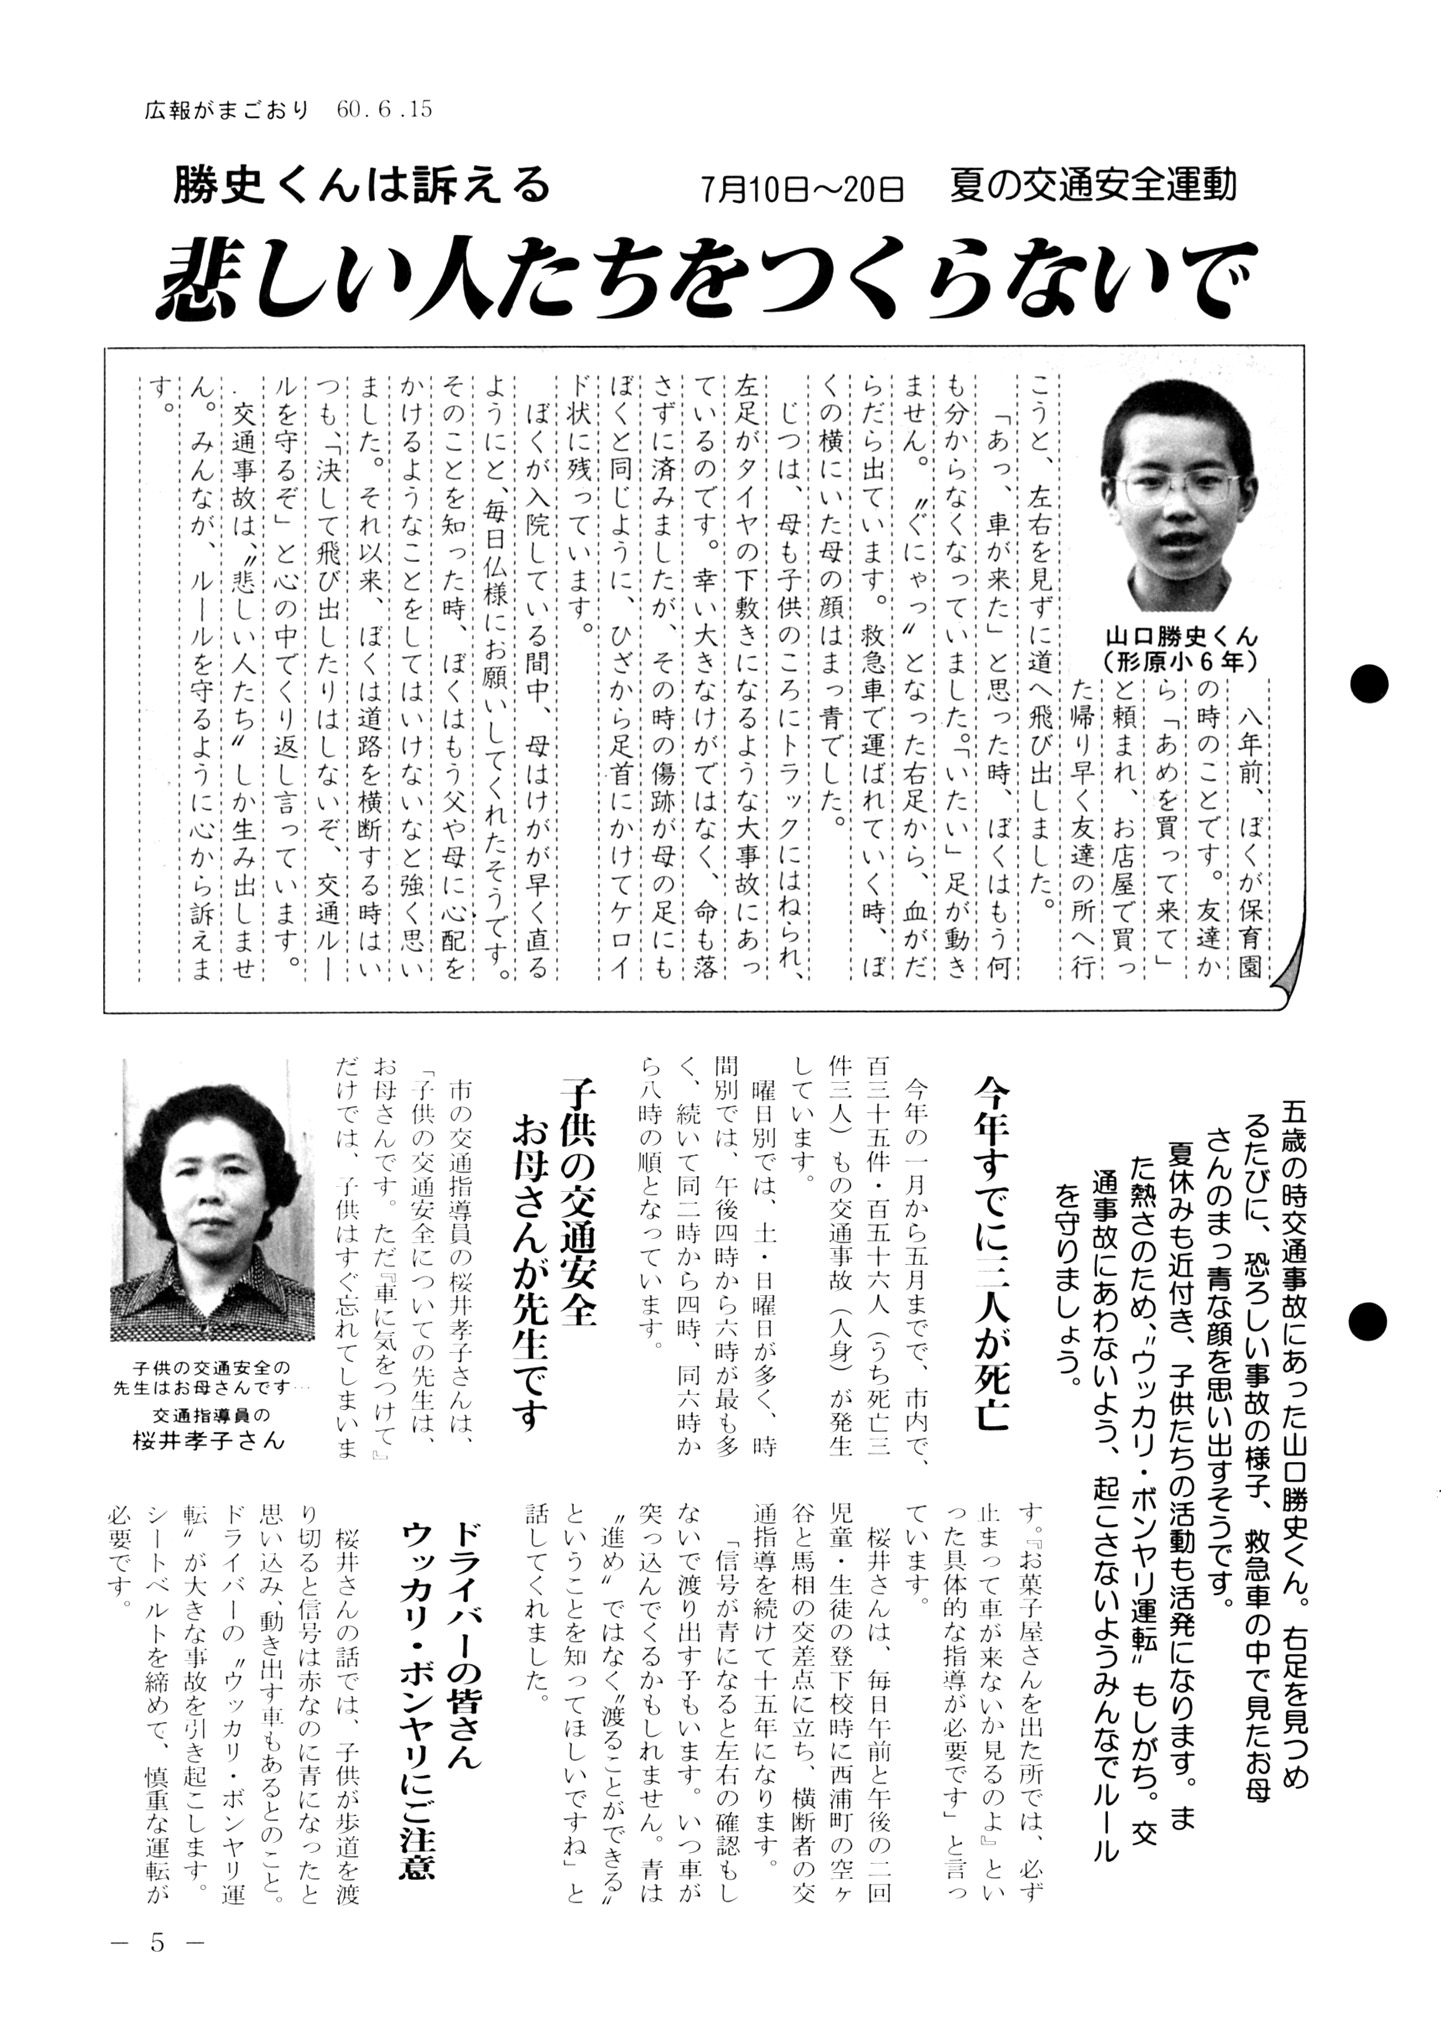 広報がまごおり 60.6.15
勝史くんは訴える
7月10日〜20日 夏の交通安全運動
悲しい人たちをつくらないで
山口勝史くん
(形原小6年)
八年前、ぼくが保育園
の時のことです。友達か
ら「あめを買って来て」
と頼まれ、お店屋で買っ
た帰り早く友達の所へ行
こうと、左右を見ずに道へ飛び出しました。
「あっ、車が来た」と思った時、ぼくはもう何
も分からなくなっていました。「いたい」足が動き
ません。〝ぐにゃっ〟となった右足から、血がだ
らだら出ています。救急車で運ばれていく時、ぼ
くの横にいた母の顔はまっ青でした。
じつは、母も子供のころにトラックにはねられ、
左足がタイヤの下敷きになるような大事故にあっ
ているのです。幸い大きなけがではなく、命も落
さずに済みましたが、その時の傷跡が母の足にも
ぼくと同じように、ひざから足首にかけてケロイ
ド状に残っています。
ぼくが入院している間中、母はけがが早く直る
ようにと、毎日仏様にお願いしてくれたそうです。
そのことを知った時、ぼくはもう父や母に心配を
かけるようなことをしてはいけないなと強く思い
ました。それ以来、ぼくは道路を横断する時はい
つも、「決して飛び出したりはしないぞ、交通ルー
ルを守るぞ」と心の中でくり返し言っています。
交通事故は、〝悲しい人たち〟しか生み出しませ
ん。みんなが、ルールを守るように心から訴えま
す。
五歳の時交通事故にあった山口勝史くん。右足を見つめ
るたびに、恐ろしい事故の様子、救急車の中で見たお母
さんのまっ青な顔を思い出すそうです。
夏休みも近付き、子供たちの活動も活発になります。ま
た熱さのため、〝ウッカリ・ボンヤリ運転〟もしがち。交
通事故にあわないよう、起こさないようみんなでルール
を守りましょう。
今年すでに三人が死亡
今年の一月から五月までで、市内で、
百三十五件・百五十六人（うち死亡三
件三人）もの交通事故（人身）が発生
しています。
曜日別では、土・日曜日が多く、時
間別では、午後四時から六時が最も多
く、続いて同二時から四時、同六時か
ら八時の順となっています。
子供の交通安全
お母さんが先生です
市の交通指導員の桜井孝子さんは、
「子供の交通安全についての先生は、
お母さんです。ただ『車に気をつけて』
だけでは、子供はすぐ忘れてしまいま
子供の交通安全の
先生はお母さんです…
交通指導員の
桜井孝子さん
す。『お菓子屋さんを出た所では、必ず
止まって車が来ないか見るのよ』とい
った具体的な指導が必要です」と言っ
ています。
桜井さんは、毎日午前と午後の二回
児童・生徒の登下校時に西浦町の空ヶ
谷と馬相の交差点に立ち、横断者の交
通指導を続けて十五年になります。
「信号が青になると左右の確認もし
ないで渡り出す子もいます。いつ車が
突っ込んでくるかもしれません。青は
〝進め〟ではなく〝渡ることができる〟
ということを知ってほしいですね」と
話してくれました。
ドライバーの皆さん
ウッカリ・ボンヤリにご注意
桜井さんの話では、子供が歩道を渡
り切ると信号は赤なのに青になったと
思い込み、動き出す車もあるとのこと。
ドライバーの〝ウッカリ・ボンヤリ運
転〟が大きな事故を引き起こします。
シートベルトを締めて、慎重な運転が
必要です。
— 5 —